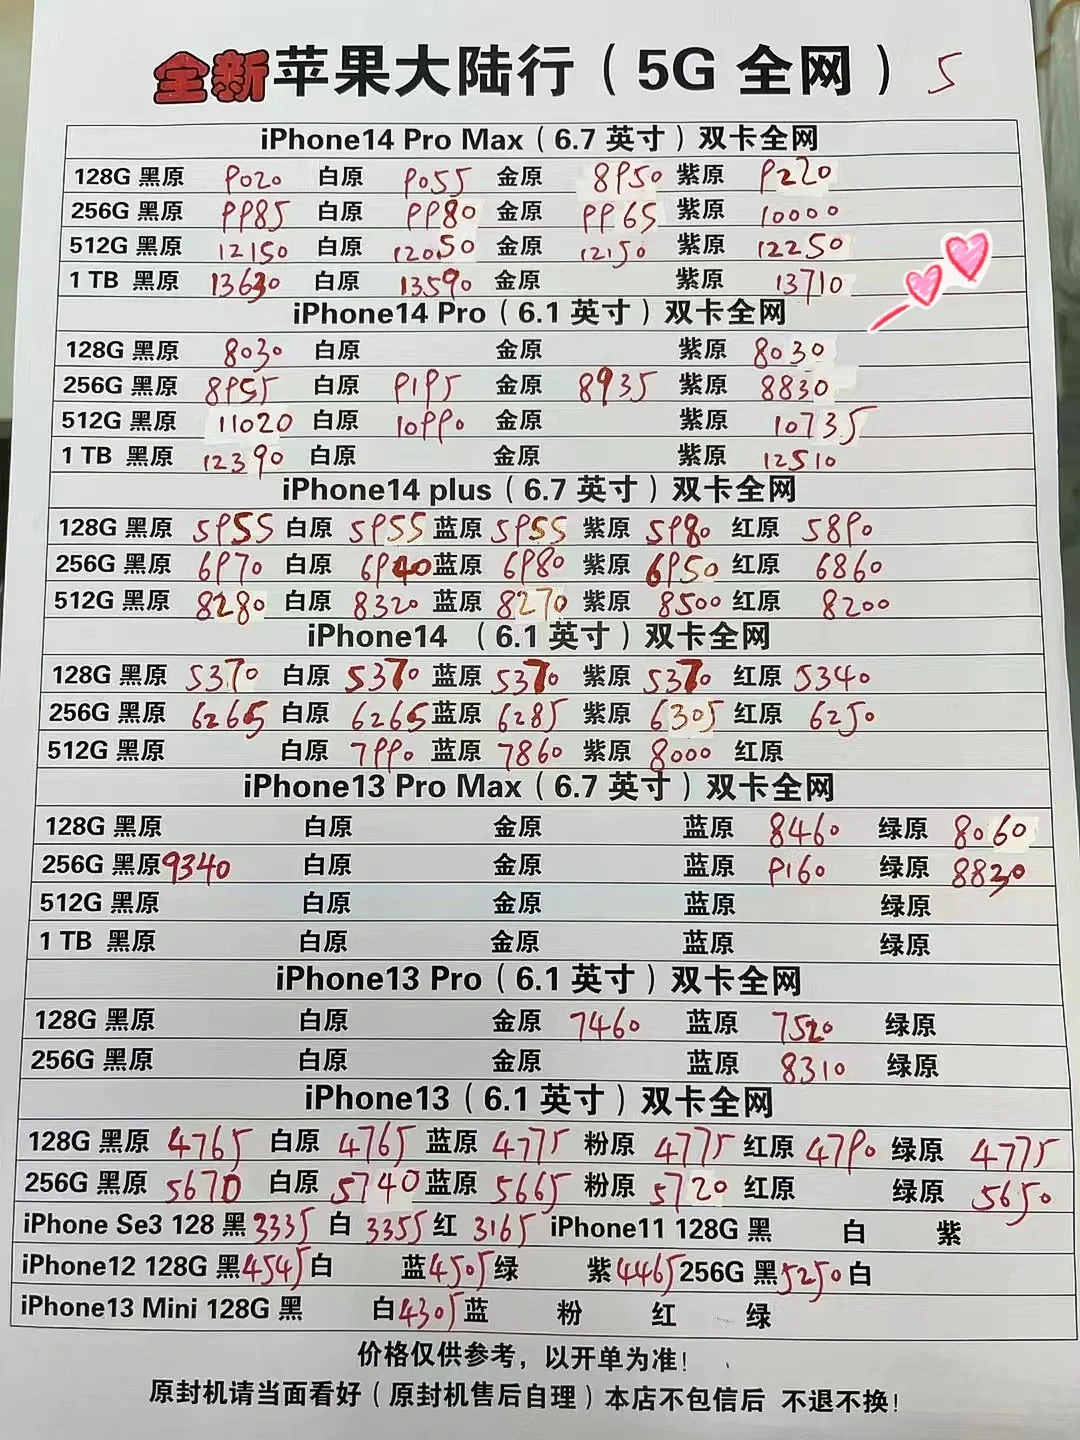 全新苹果大陆行（5G 全网）5
iPhone14 Pro Max（6.7 英寸）双卡全网
128G 黑原 9020 白原 9055 金原 8950 紫原 9220
256G 黑原 9985 白原 9980 金原 9965 紫原 10000
512G 黑原 12150 白原 12050 金原 12150 紫原 12250
1 TB 黑原 13630 白原 13590 金原 紫原 13710
iPhone14 Pro（6.1 英寸）双卡全网
128G 黑原 8030 白原 金原 紫原 8030
256G 黑原 8955 白原 9195 金原 8935 紫原 8830
512G 黑原 11020 白原 10990 金原 紫原 10735
1 TB 黑原 12390 白原 金原 紫原 12510
iPhone14 plus（6.7 英寸）双卡全网
128G 黑原 5955 白原 5955 蓝原 5955 紫原 5980 红原 5890
256G 黑原 6970 白原 6940 蓝原 6980 紫原 6950 红原 6860
512G 黑原 8280 白原 8320 蓝原 8270 紫原 8500 红原 8200
iPhone14 （6.1 英寸）双卡全网
128G 黑原 5370 白原 5370 蓝原 5370 紫原 5370 红原 5340
256G 黑原 6265 白原 6265 蓝原 6285 紫原 6305 红原 6250
512G 黑原 白原 7990 蓝原 7860 紫原 8000 红原
iPhone13 Pro Max（6.7 英寸）双卡全网
128G 黑原 白原 金原 蓝原 8460 绿原 8060
256G 黑原 9340 白原 金原 蓝原 9160 绿原 8830
512G 黑原 白原 金原 蓝原 绿原
1 TB 黑原 白原 金原 蓝原 绿原
iPhone13 Pro（6.1 英寸）双卡全网
128G 黑原 白原 金原 7460 蓝原 7520 绿原
256G 黑原 白原 金原 蓝原 8310 绿原
iPhone13（6.1 英寸）双卡全网
128G 黑原 4765 白原 4765 蓝原 4775 粉原 4775 红原 4790 绿原 4775
256G 黑原 5670 白原 5740 蓝原 5665 粉原 5720 红原 绿原 5650
iPhone Se3 128 黑 3335 白 3355 红 3165 iPhone11 128G 黑 白 紫
iPhone12 128G 黑 4545 白 蓝 4505 绿 紫 4465 256G 黑 5250 白
iPhone13 Mini 128G 黑 白 4305 蓝 粉 红 绿
价格仅供参考，以开单为准！
原封机请当面看好（原封机售后自理）本店不包信后 不退不换！